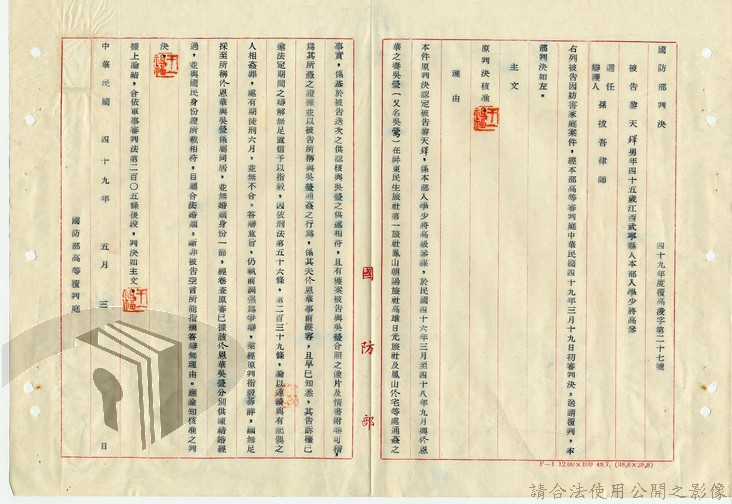 國防部判決
四十九年度覆高淩字第二十七號
被告黎天鐸男年四十五歲江西武寧縣人本部人學少將高參
選任
辯護人 孫祓吾律師
右列被告因妨害家庭案件,經本部高等審判庭中華民國四十九年三月十九日初審判決,送請覆判,本
部判決如左。
主文
原判決核准
理由
本件原判決認定被告黎天鐸,係本部人學少將高級參謀,於民國四十六年三月至四十八年九月與佟恩
華之妻吳瑩(又名吳鶯)在屏東民生旅社第一旅社鳳山朝陽旅社高雄日光旅社及鳳山佟宅等處通姦之
國防部
事實,係基於被告迭次之供認核與吳瑩之供述相符,且有檢案被告與吳瑩合照之像片及情書附卷可稽,
為其所憑之證據並以被告所稱與吳瑩通姦之行為,係其夫佟恩華事前縱容,且早已知悉,其告訴權已
逾法定期間之辯解無足置信予以指駁,因依刑法第五十六條,第二百三十九條,論以連續與有配偶之
人相姦罪,處有期徒刑六月,並無不合。答辯意旨,仍執前詞強為爭辯,業經原判指駁綦詳,顯無足
採至所稱佟恩華與吳瑩係屬同居,並無婚姻身份一節,經卷查原審已據該佟恩華吳瑩分別供陳結婚經
過,並與國民身份證所載相符,自屬合法婚姻,斷非被告空言所能指摘答辯無理由。應論知核准之判
決。
據上論結,合依軍事審判法第二百〇五條後段,判決如主文。
中華民國四十九年五月三日
國防部高等覆判庭
F-1 12.00×100 48.7. (38.8×26.8)
請合法使用公開之影像